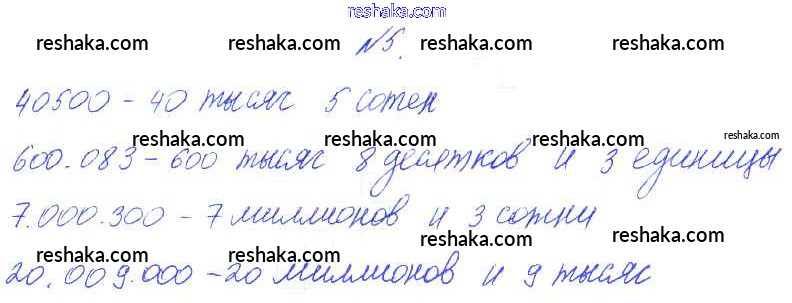 reshaka.com
reshaka.com reshaka.com №5. reshaka.com reshaka.com
40500 - 40 тысяч 5 сотен
reshaka.com reshaka.com reshaka.com reshaka.com
600.083 - 600 тысяч 8 десятков и 3 единицы
reshaka.com reshaka.com reshaka.com reshaka.com
7.000.300 - 7 миллионов и 3 сотни
reshaka.com reshaka.com reshaka.com reshaka.com
20.009.000 - 20 миллионов и 9 тысяч
reshaka.com